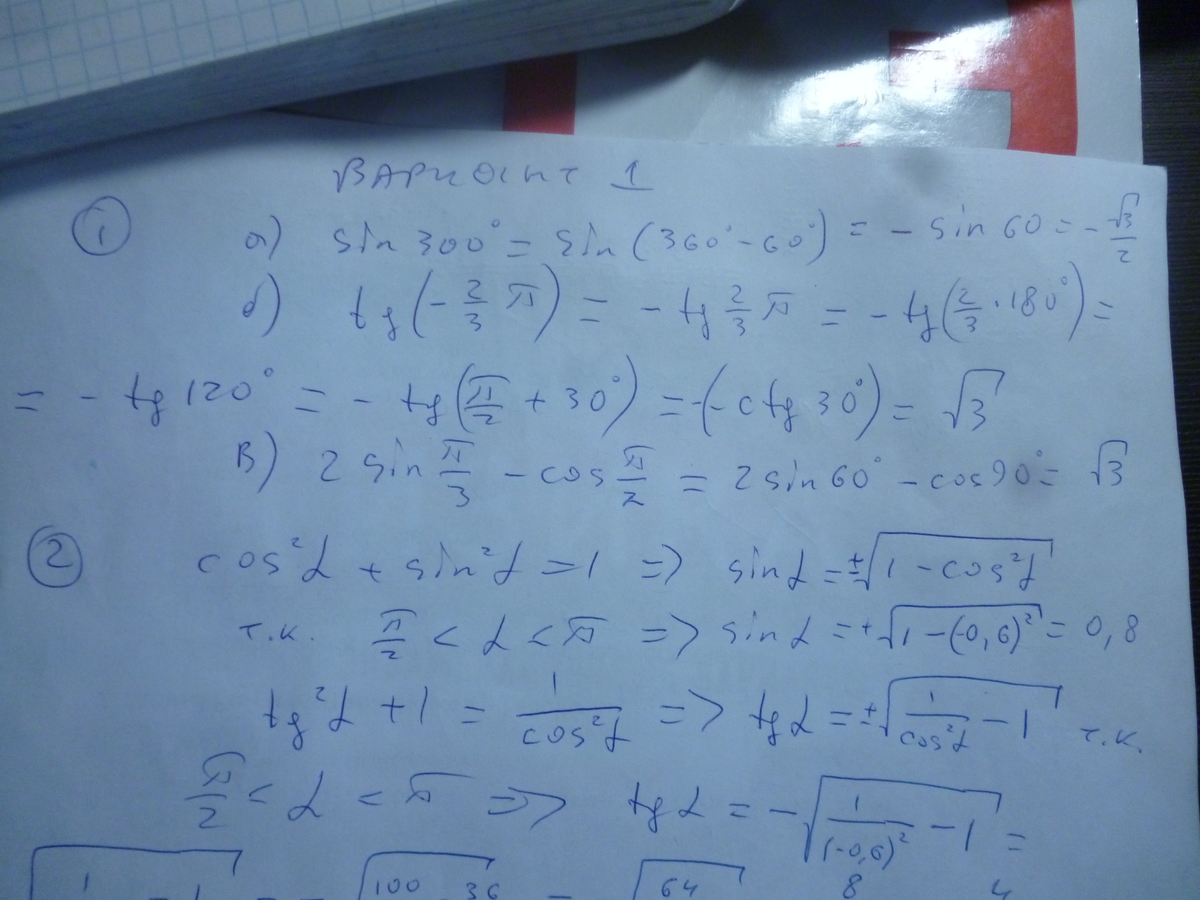 ВАРИАНТ 1
① а) sin 300° = sin (360° - 60°) = - sin 60 = - √3/2
б) tg(- 2/3 π) = - tg 2/3 π = - tg(2/3 · 180°) =
= - tg 120° = - tg(π/2 + 30°) = -(- ctg 30°) = √3
в) 2 sin π/3 - cos π/2 = 2 sin 60° - cos 90° = √3
② cos²α + sin²α = 1 => sin α = ±√(1 - cos²α)
т.к. π/2 < α < π => sin α = +√(1 - (-0,6)²) = 0,8
tg²α + 1 = 1/cos²α => tg α = ±√(1/cos²α - 1) т.к.
π/2 < α < π => tg α = -√(1/(-0,6)² - 1) =
100 36 64 8 4